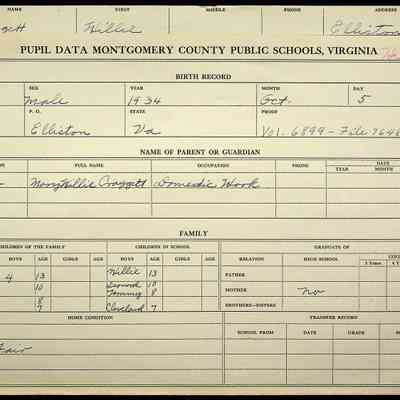 FIRST MIDDLE PHONE ADDRESS
Willie Elliston
PUPIL DATA MONTGOMERY COUNTY PUBLIC SCHOOLS, VIRGINIA
BIRTH RECORD
SEX YEAR MONTH DAY
Male 1934 Oct. 5
P. O. STATE PROOF
Elliston Va Vol. 6899 - File
NAME OF PARENT OR GUARDIAN
FULL NAME OCCUPATION PHONE DATE
YEAR MONTH
Mary Willie Domestic Work
FAMILY
CHILDREN OF THE FAMILY CHILDREN IN SCHOOL GRADUATE OF
BOYS AGE GIRLS AGE BOYS AGE GIRLS AGE RELATION HIGH SCHOOL
2 Years
4 13 Willie 13 FATHER
10 10
8 Tommy 8 MOTHER no
7 Cleveland 7 BROTHERS—SISTERS
HOME CONDITION TRANSFER RECORD
SCHOOL FROM DATE GRADE
Fair